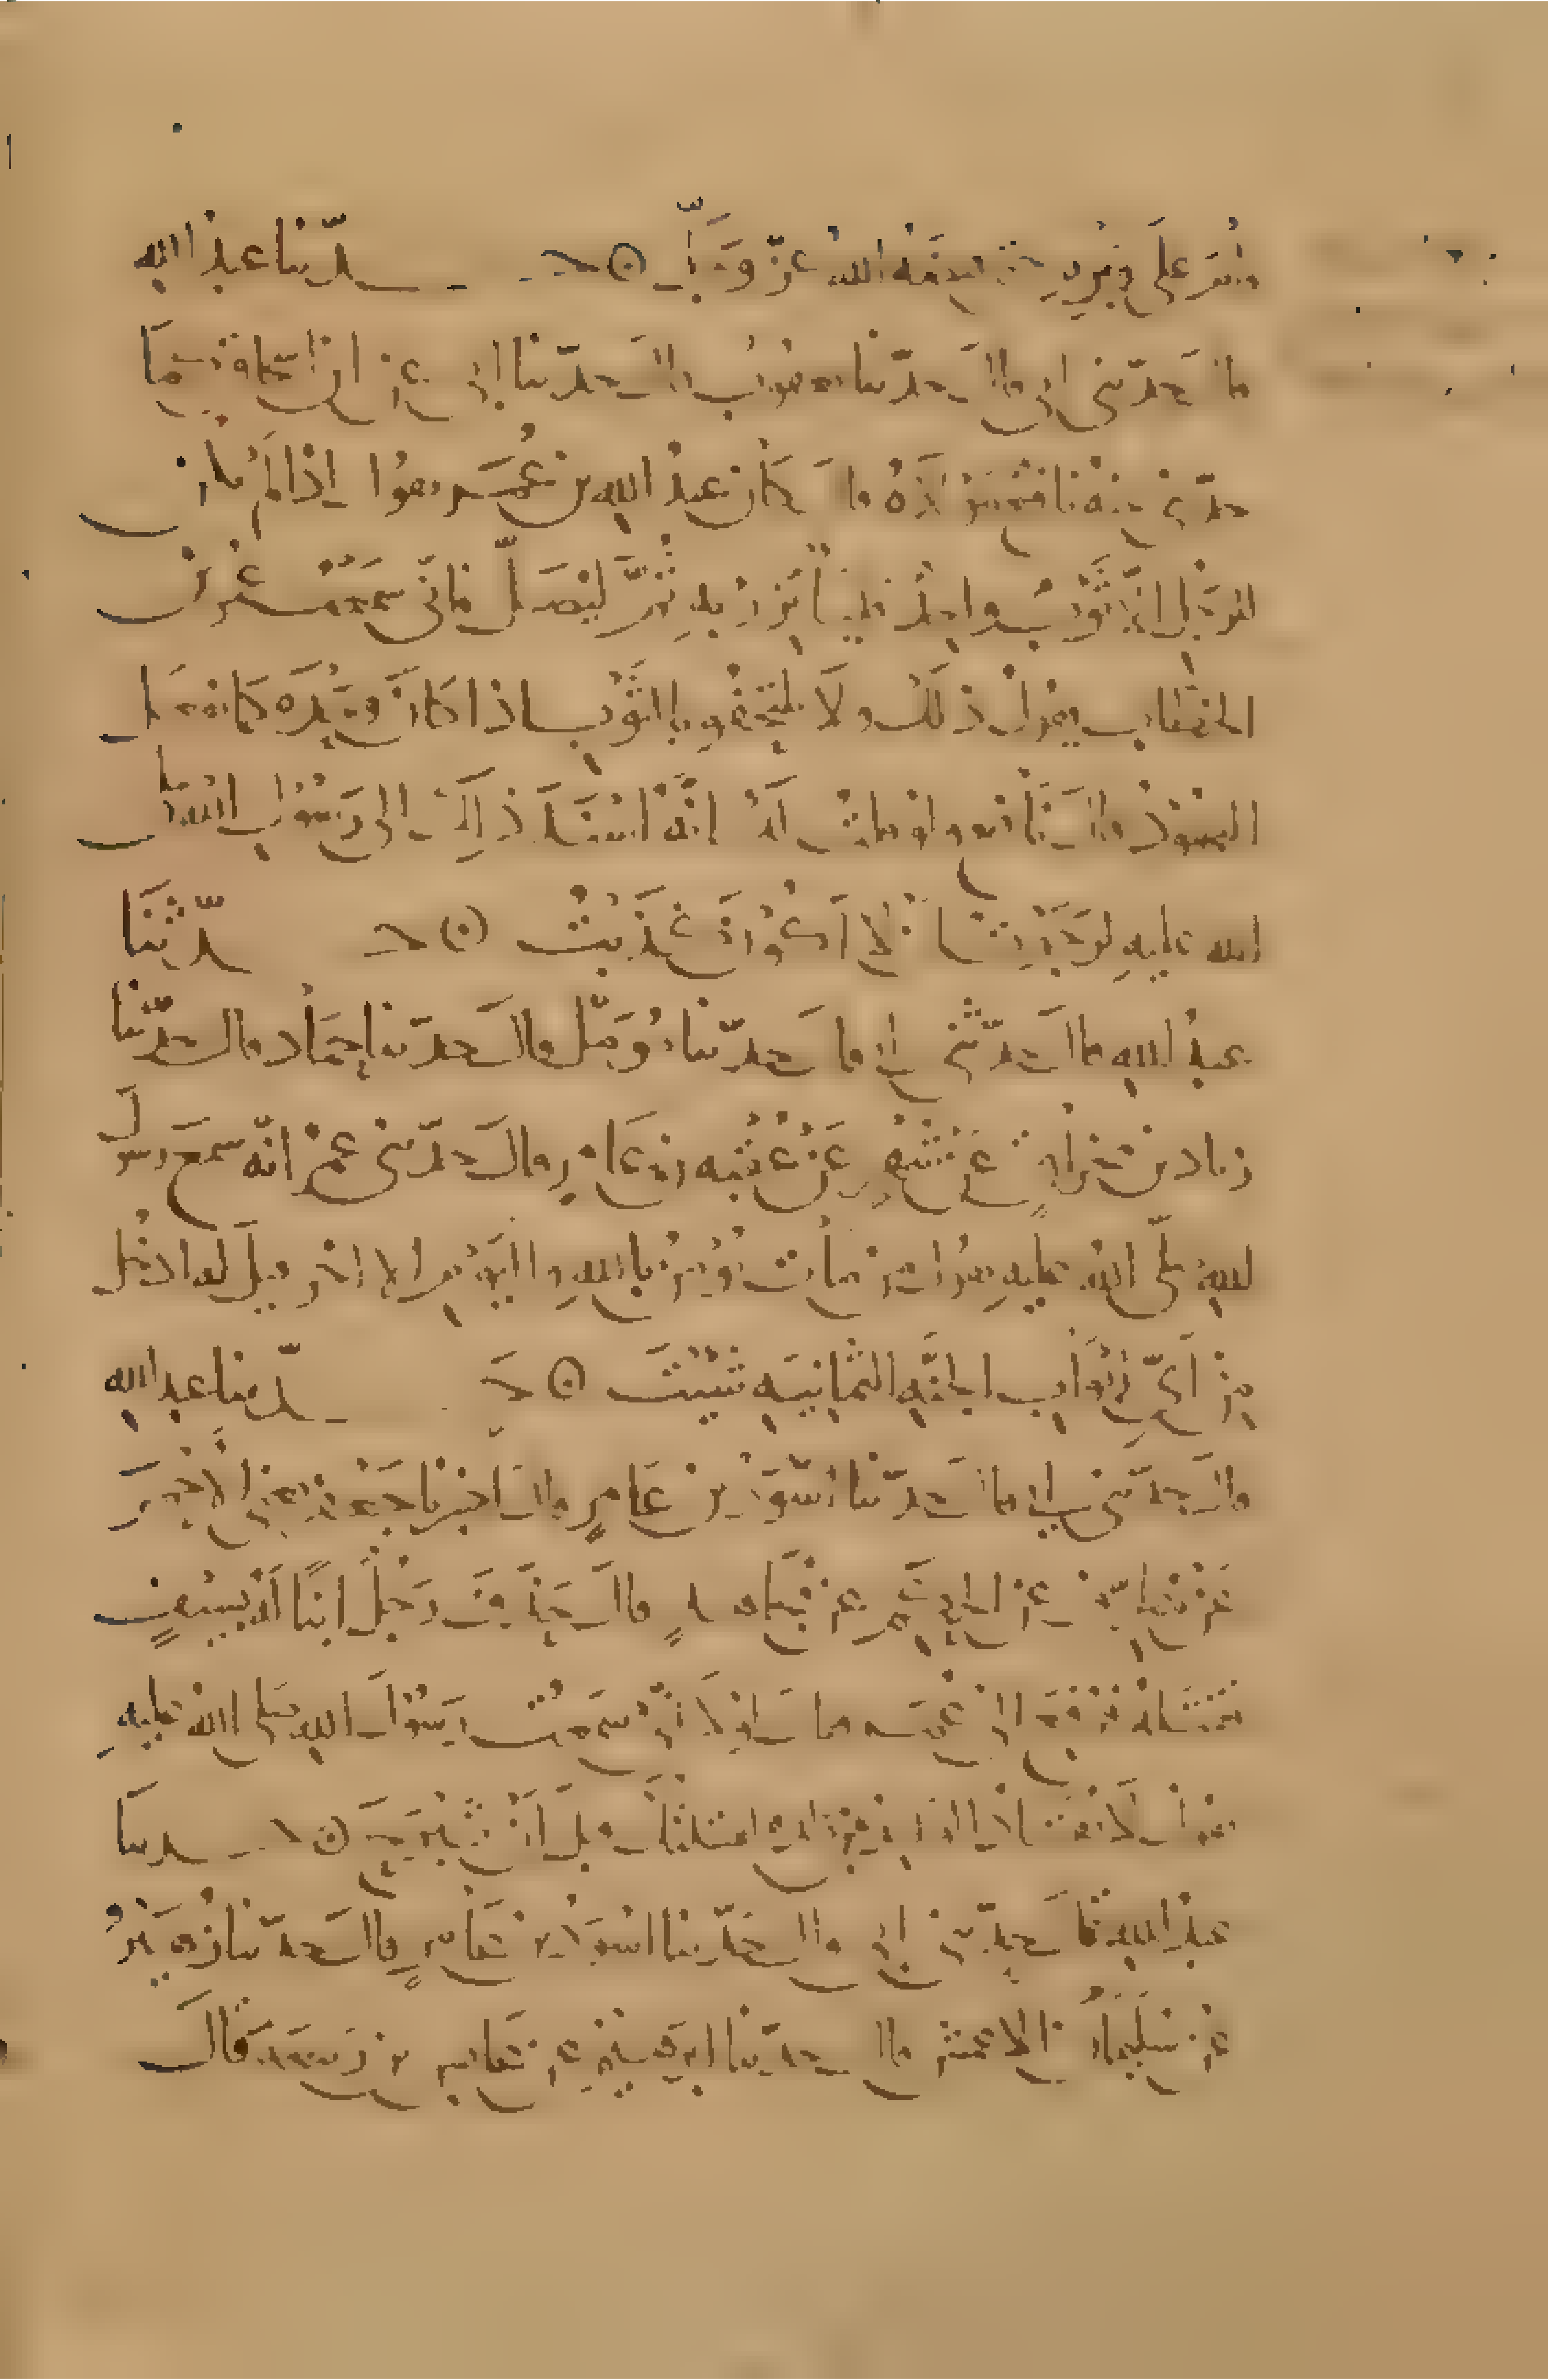 وانفر على فيريد حتى يبعثه الله عز وجل ۞ حدّثنا عبد الله
قال حدّثني ابي قال حدّثنا يعقوب قال حدّثنا ابي عن ابن اسحاق كما
حدّثني عنه نافع مولاه قال كان عبد الله بن عُمَر يقول اذا لم يكن
للرجل الا ثوب واحد فليأتزر به ثمّ ليصلّ فانّي سمعت عُمر بن
الخطاب يقول ذلك ولا تلتحفوا بالثوب اذا كان وحده كما تفعل
اليهود قال نافع ولو قلت لك انّه اسند ذلك الى رسول الله صلى
الله عليه لرجوت الا اكون كذبت ۞ حدّثنا
عبد الله قال حدّثني ابي قال حدّثنا مؤمّل قال حدّثنا حمّاد قال حدّثنا
زياد بن مخراق عن شهر عن عقبه بن عامر قال حدّثني عمر انّه سمع رسول
الله صلّى الله عليه يقول من مات يؤمن بالله واليوم الاخر قيل له ادخل
من ايّ ابواب الجنّه الثمانيه شئت ۞ حدّثنا عبد الله
قال حدّثني ابي قال حدّثنا اسود بن عامر قال اخبرنا جعفر يعني الاحمر
عن مطرّف عن الحكم عن مجاهد قال حذف رجل ابنا له بسيف
فقتله فرفع الى عمر فقال لولا انّي سمعت رسول الله صلى الله عليه
يقول لا يقاد الوالد من ولده لقتلتك قبل ان تبرح ۞ حدثنا
عبد الله قال حدّثني ابي قال حدّثنا اسود بن عامر قال حدّثنا زهير
عن سليمان الاعمش قال حدّثنا ابرهيم عن عابس بن ربيعه قال